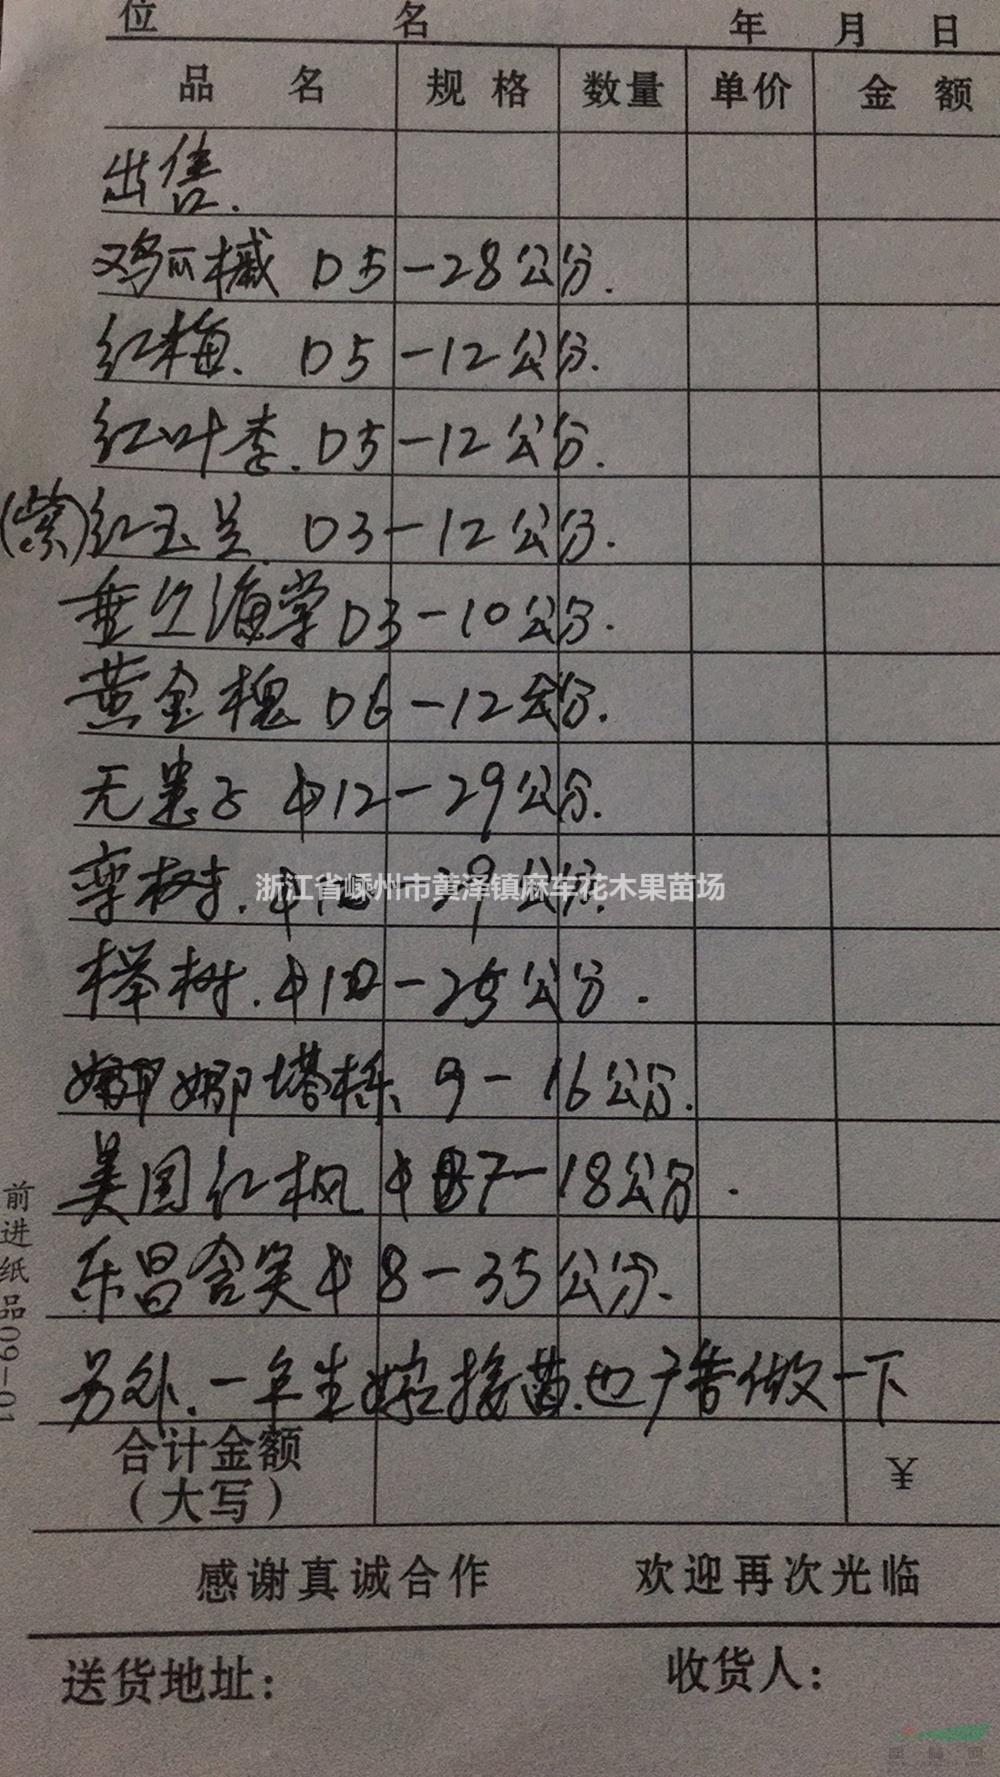 位 名 年 月 日
品 名 规 格 数量 单价 金 额
出售.
鸡爪槭 D5-28公分.
红梅. D5-12公分.
红叶李. D5-12公分.
(紫)红玉兰 D3-12公分.
垂丝海棠 D3-10公分.
黄金槐 D6-12公分.
无患子 φ12-29公分.
栾树. φ10-29公分.
浙江省嵊州市黄泽镇麻车花木果苗场
榉树. φ12-25公分.
娜娜塔栎、9-16公分.
美国红枫 φ7-18公分.
乐昌含笑 φ8-35公分.
另外.一年生嫁接苗.也广告做一下
合计金额
(大写) ¥
感谢真诚合作 欢迎再次光临
送货地址: 收货人:
前进纸品09-01